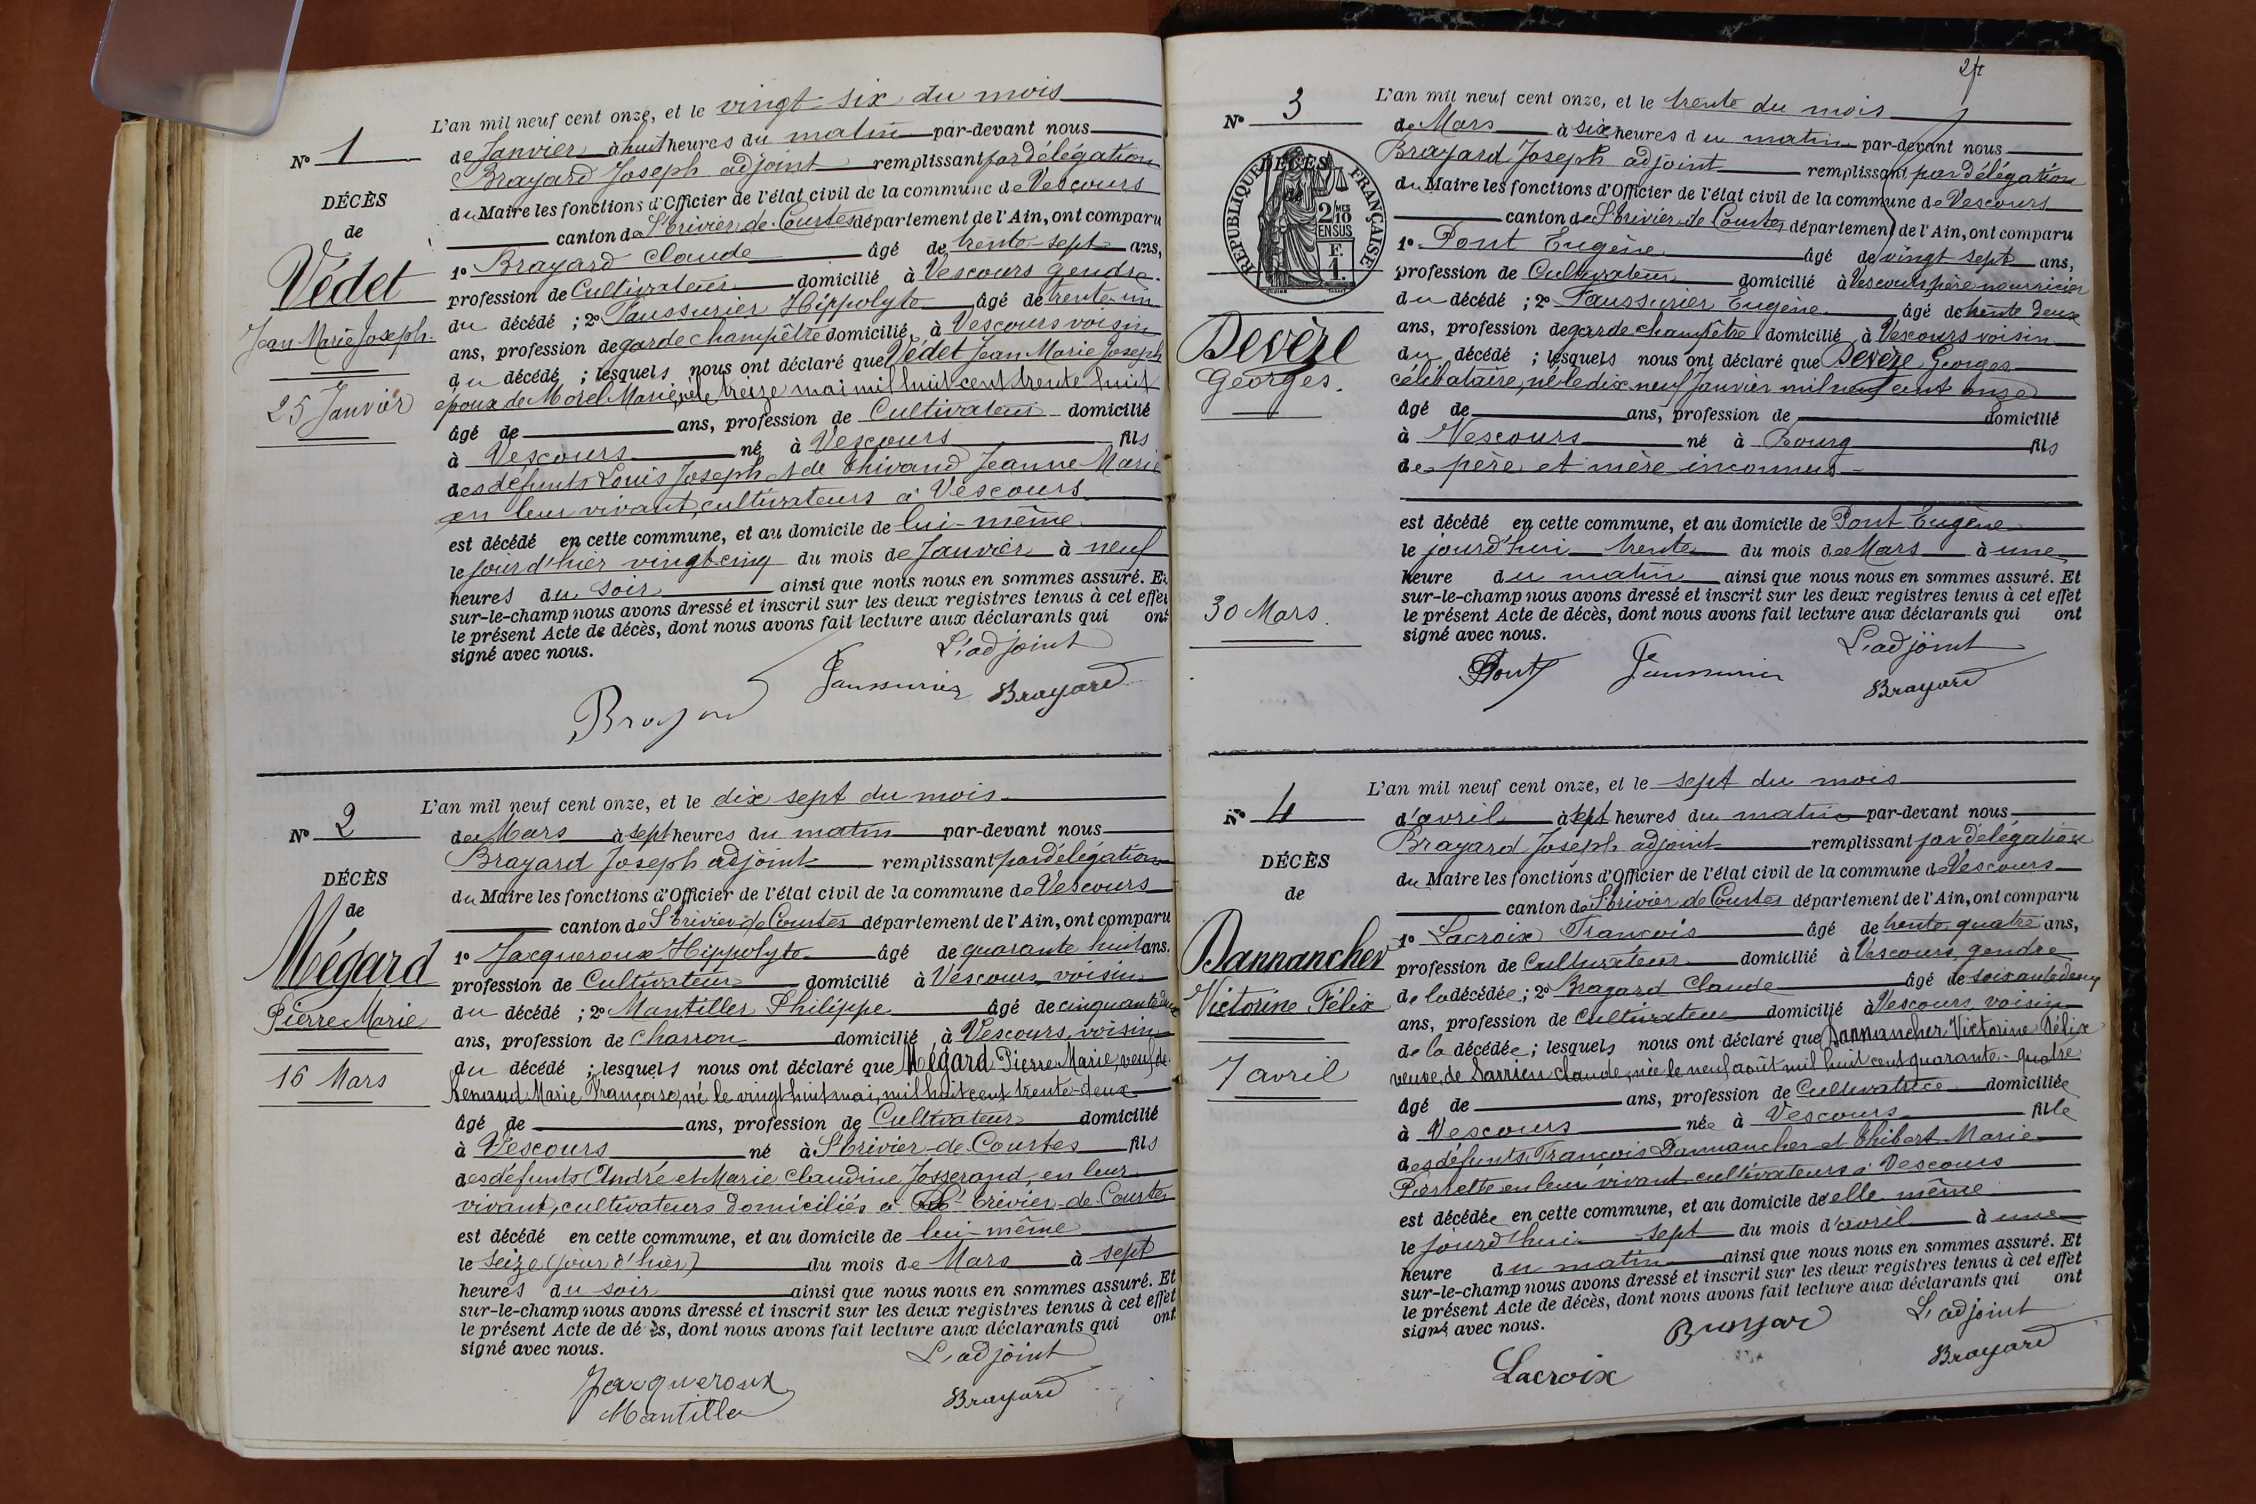 N° 1
DÉCÈS
de
Védet
Jean Marie Joseph
25 Janvier
L'an mil neuf cent onze, et le vingt six du mois
de Janvier à huit heures du matin par-devant nous
Brayard Joseph adjoint remplissant par délégation
du Maire les fonctions d'Officier de l'état civil de la commune de Vescours
canton de St Trivier de Courtes département de l'Ain, ont comparu
1° Brayard Claude âgé de trente-sept ans,
profession de Cultivateur domicilié à Vescours gendre
du décédé ; 2° Faussurier Hippolyte âgé de trente un
ans, profession de garde champêtre domicilié à Vescours voisin
du décédé ; lesquels nous ont déclaré que Védet Jean Marie Joseph
époux de Morel Marie, né le treize mai mil huit cent trente huit
âgé de ans, profession de Cultivateur domicilié
à Vescours né à Vescours fils
des défunts Louis Joseph et de Thivaud Jeanne Marie
en leur vivant, cultivateurs à Vescours
est décédé en cette commune, et au domicile de lui-même
le jour d'hier vingt cinq du mois de Janvier à neuf
heures du soir ainsi que nous nous en sommes assuré. Et
sur-le-champ nous avons dressé et inscrit sur les deux registres tenus à cet effet
le présent Acte de décès, dont nous avons fait lecture aux déclarants qui ont
signé avec nous.
L'adjoint
Brayard Faussurier Brayard
N° 2
DÉCÈS
de
Mégard
Pierre Marie
16 Mars
L'an mil neuf cent onze, et le dix sept du mois
de Mars à sept heures du matin par-devant nous
Brayard Joseph adjoint remplissant par délégation
du Maire les fonctions d'Officier de l'état civil de la commune de Vescours
canton de St Trivier de Courtes département de l'Ain, ont comparu
1° Jacqueroux Hippolyte âgé de quarante huit ans.
profession de Cultivateur domicilié à Vescours voisin
du décédé ; 2° Mantiller Philippe âgé de cinquante
ans, profession de Charron domicilié à Vescours, voisin
du décédé ; lesquels nous ont déclaré que Mégard Pierre Marie, veuf de
Renaud Marie Françoise, né le vingt huit mai, mil huit cent trente-deux
âgé de ans, profession de Cultivateur domicilié
à Vescours né à St Trivier-de-Courtes fils
des défunts André et Marie Claudine Josserand, en leur
vivant, cultivateurs domiciliés à St-Trivier-de-Courtes
est décédé en cette commune, et au domicile de lui-même
le seize (jour d'hier) du mois de Mars à sept
heures du soir ainsi que nous nous en sommes assuré. Et
sur-le-champ nous avons dressé et inscrit sur les deux registres tenus à cet effet
le présent Acte de dé ès, dont nous avons fait lecture aux déclarants qui ont
signé avec nous.
L'adjoint
Jacqueroux
Mantiller Brayard
N° 3
DÉCÈS
de
RÉPUBLIQUE FRANÇAISE
2/10 MES
EN SUS
F.
1.
Devèze
Georges.
30 Mars.
L'an mil neuf cent onze, et le trente du mois
de Mars à six heures du matin par-devant nous
Brayard Joseph adjoint remplissant par délégation
du Maire les fonctions d'Officier de l'état civil de la commune de Vescours
canton de St Trivier de Courtes département de l'Ain, ont comparu
1° Pont Eugène âgé de vingt sept ans,
profession de Cultivateur domicilié à Vescours, père nourricier
du décédé ; 2° Faussurier Eugène âgé de trente deux
ans, profession de garde champêtre domicilié à Vescours voisin
du décédé ; lesquels nous ont déclaré que Devèze Georges
célibataire, né le dix neuf Janvier mil neuf cent onze
âgé de ans, profession de domicilié
à Vescours né à Bourg fils
de père et mère inconnus
est décédé en cette commune, et au domicile de Pont Eugène
le jourd'hui trente du mois de Mars à une
heure du matin ainsi que nous nous en sommes assuré. Et
sur-le-champ nous avons dressé et inscrit sur les deux registres tenus à cet effet
le présent Acte de décès, dont nous avons fait lecture aux déclarants qui ont
signé avec nous.
L'adjoint
Pont Faussurier Brayard
N° 4
DÉCÈS
de
Dannancher
Victorine Félix
7 avril
L'an mil neuf cent onze, et le sept du mois
d'avril à sept heures du matin par-devant nous
Brayard Joseph adjoint remplissant par délégation
du Maire les fonctions d'Officier de l'état civil de la commune de Vescours
canton de St Trivier de Courtes département de l'Ain, ont comparu
1° Lacroix François âgé de trente quatre ans,
profession de Cultivateur domicilié à Vescours, gendre
de la décédée ; 2° Brayard Claude âgé de soixante deux
ans, profession de Cultivateur domicilié à Vescours, voisin
de la décédée ; lesquels nous ont déclaré que Dannancher Victorine Félix
veuve de Sarrien Claude, née le neuf août mil huit cent quarante-quatre
âgé de ans, profession de Cultivatrice domiciliée
à Vescours née à Vescours fille
des défunts François Dannancher et Thibert Marie
Pierrette en leur vivant cultivateurs à Vescours
est décédée en cette commune, et au domicile de elle même
le jourd'hui sept du mois d'avril à une
heure du matin ainsi que nous nous en sommes assuré. Et
sur-le-champ nous avons dressé et inscrit sur les deux registres tenus à cet effet
le présent Acte de décès, dont nous avons fait lecture aux déclarants qui ont
signé avec nous.
L'adjoint
Lacroix Brayard Brayard